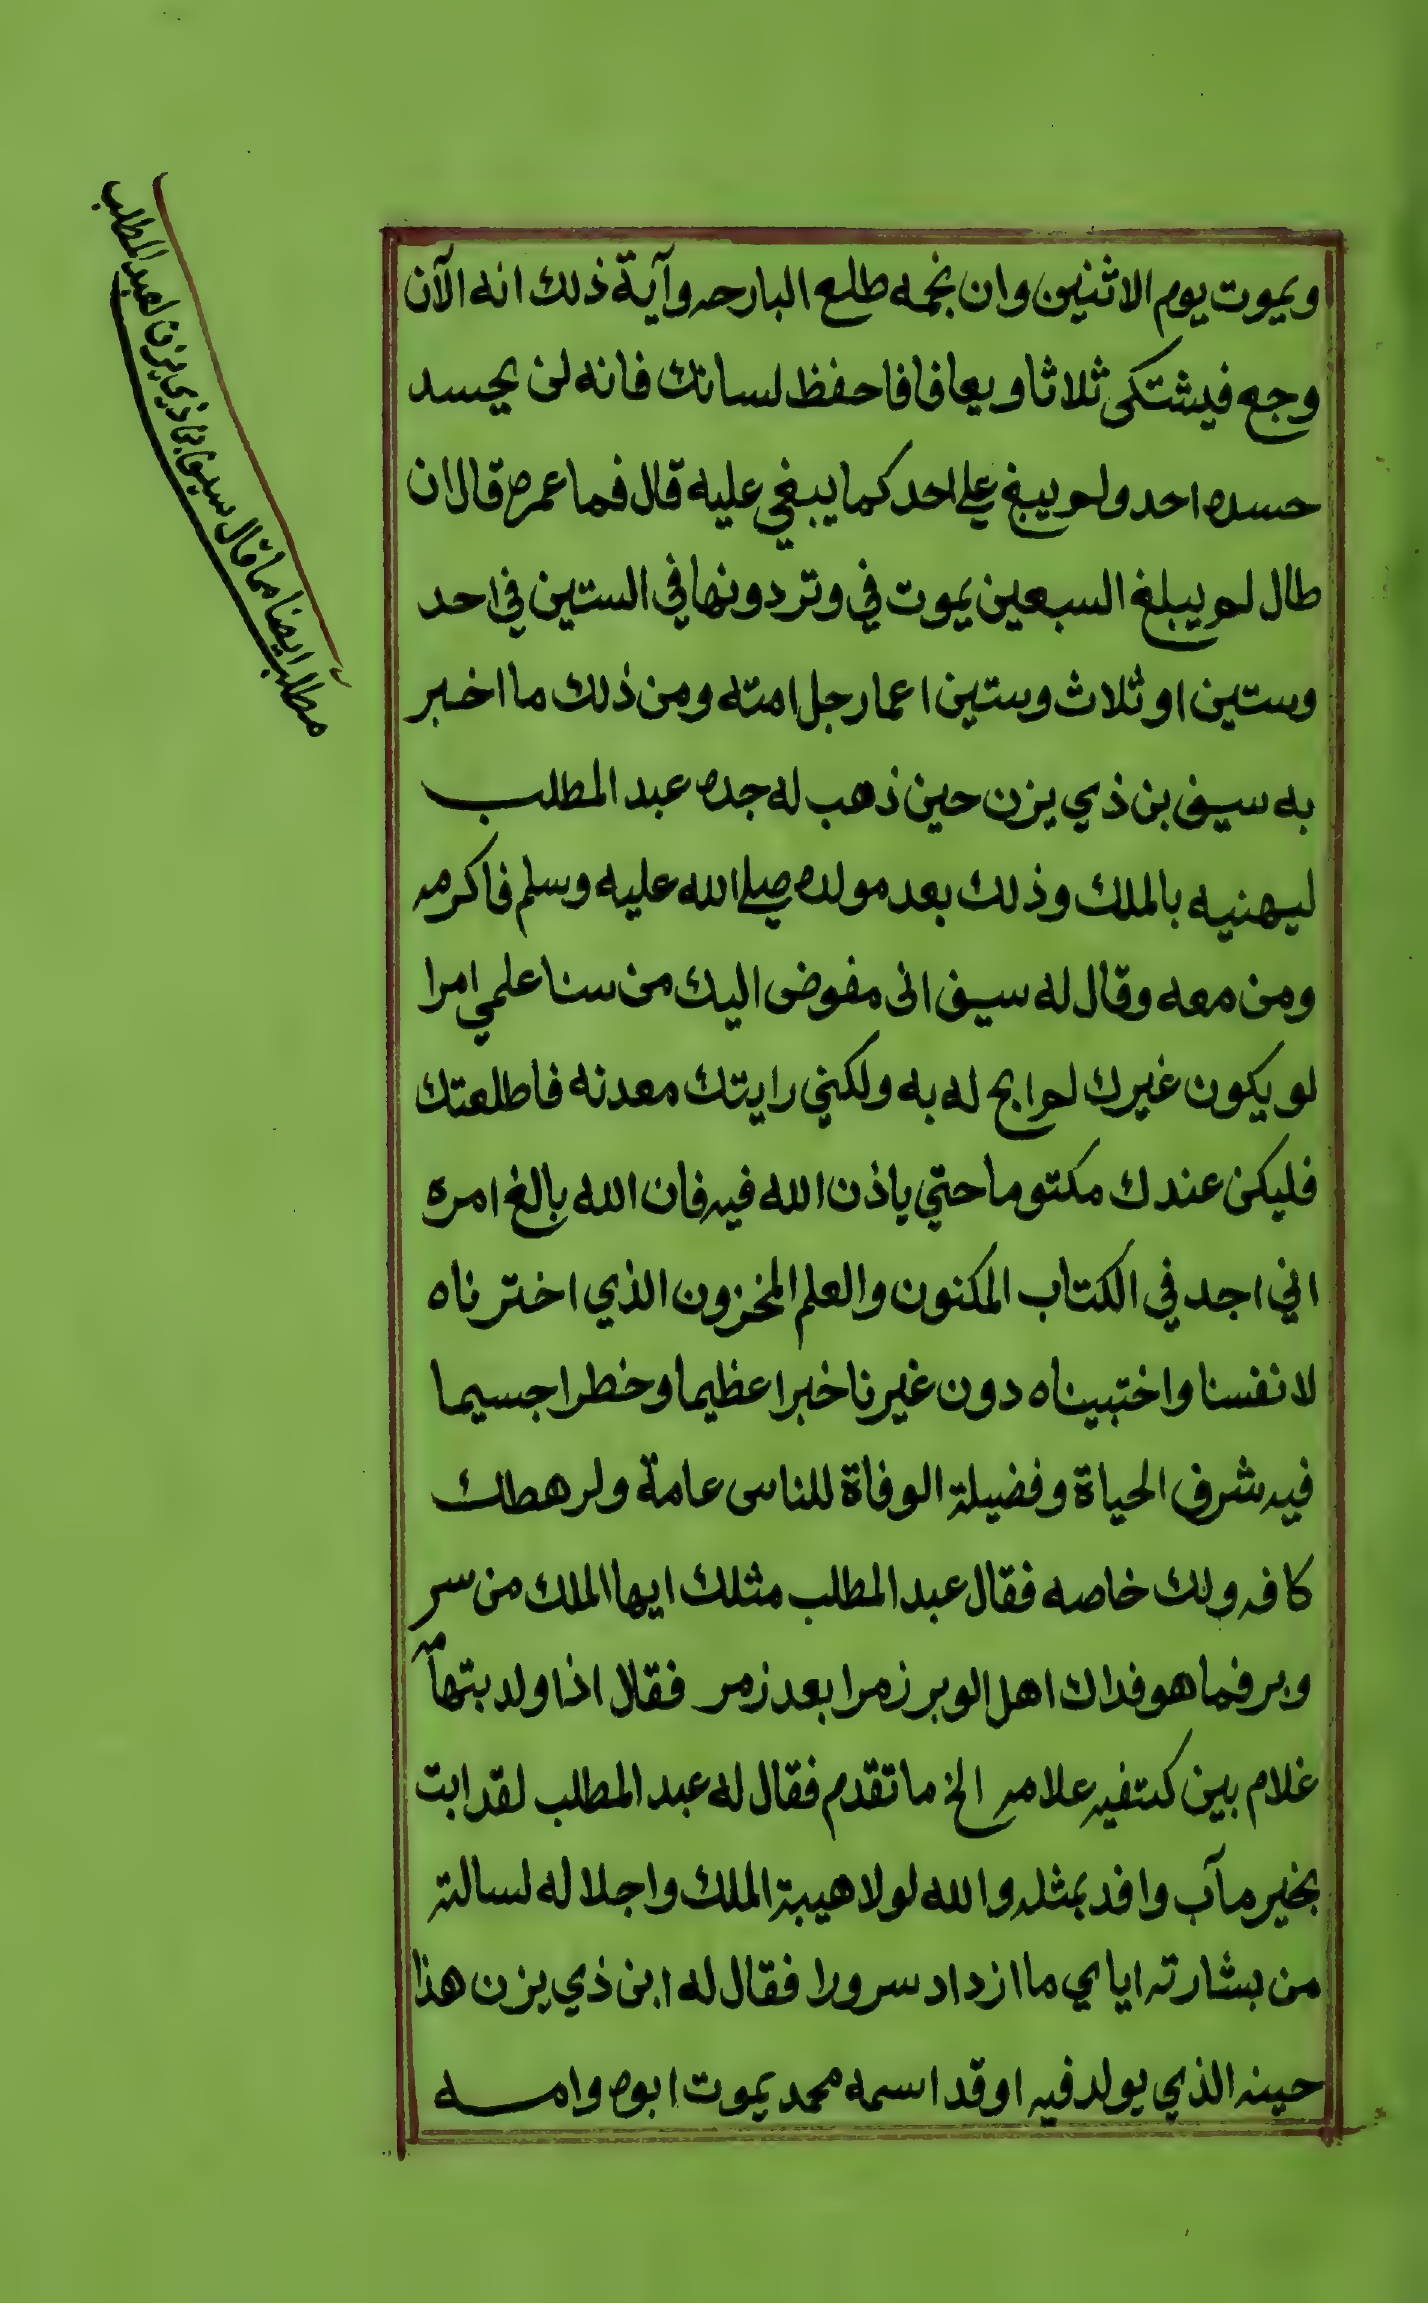 ويموت يوم الاثنين وان نجمه طلع البارحه وآية ذلك انه الآن
وجع فيشتكى ثلاثا ويعافا فاحفظ لسانك فانه لن يحسد
حسده احد ولم يبغ على احد كما يبغي عليه قال فما عمره قال ان
طال لم يبلغ السبعين يموت في وتر دونها في الستين في احد
وستين او ثلاث وستين اعمار جل امته ومن ذلك ما اخبر
به سيف بن ذي يزن حين ذهب له جده عبد المطلب
ليهنيه بالملك وذلك بعد مولده صلى الله عليه وسلم فاكرمه
ومن معه وقال له سيف انى مفوض اليك من سنا علمي امرا
لو يكون غيرك لم ابح له به ولكني رايتك معدنه فاطلعتك
فليكن عندك مكتوما حتي ياذن الله فيه فان الله بالغ امره
اني اجد في الكتاب المكنون والعلم المخزون الذي اخترناه
لانفسنا واختبيناه دون غيرنا خبرا عظيما وخطرا جسيما
فيه شرف الحياة وفضيلة الوفاة للناس عامة ولرهطك
كافه ولك خاصه فقال عبد المطلب مثلك ايها الملك من سر
وبر فما هو فداك اهل الوبر زمرا بعد زمر فقال اذا ولد بتهامه
غلام بين كتفيه علامه الخ ما تقدم فقال له عبد المطلب لقد ابت
بخير مآب وافد بمثله والله لولا هيبة الملك واجلاله لسالته
من بشارته اياي ما ازداد سرورا فقال له ابن ذي يزن هذا
حينه الذي يولد فيه او قد اسمه محمد يموت ابوه وامه
مطلب ايضا مما قال سيف بن ذي يزن لعبد المطلب